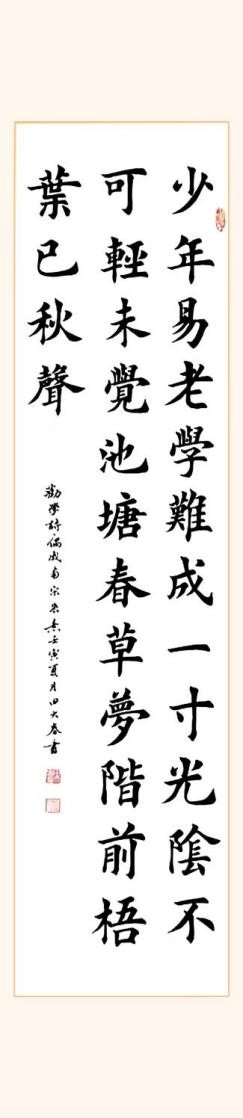 少年易老學難成一寸光陰不
可輕未覺池塘春草夢階前梧
葉已秋聲
勸學詩偶成南宋朱熹壬寅夏月田大春書